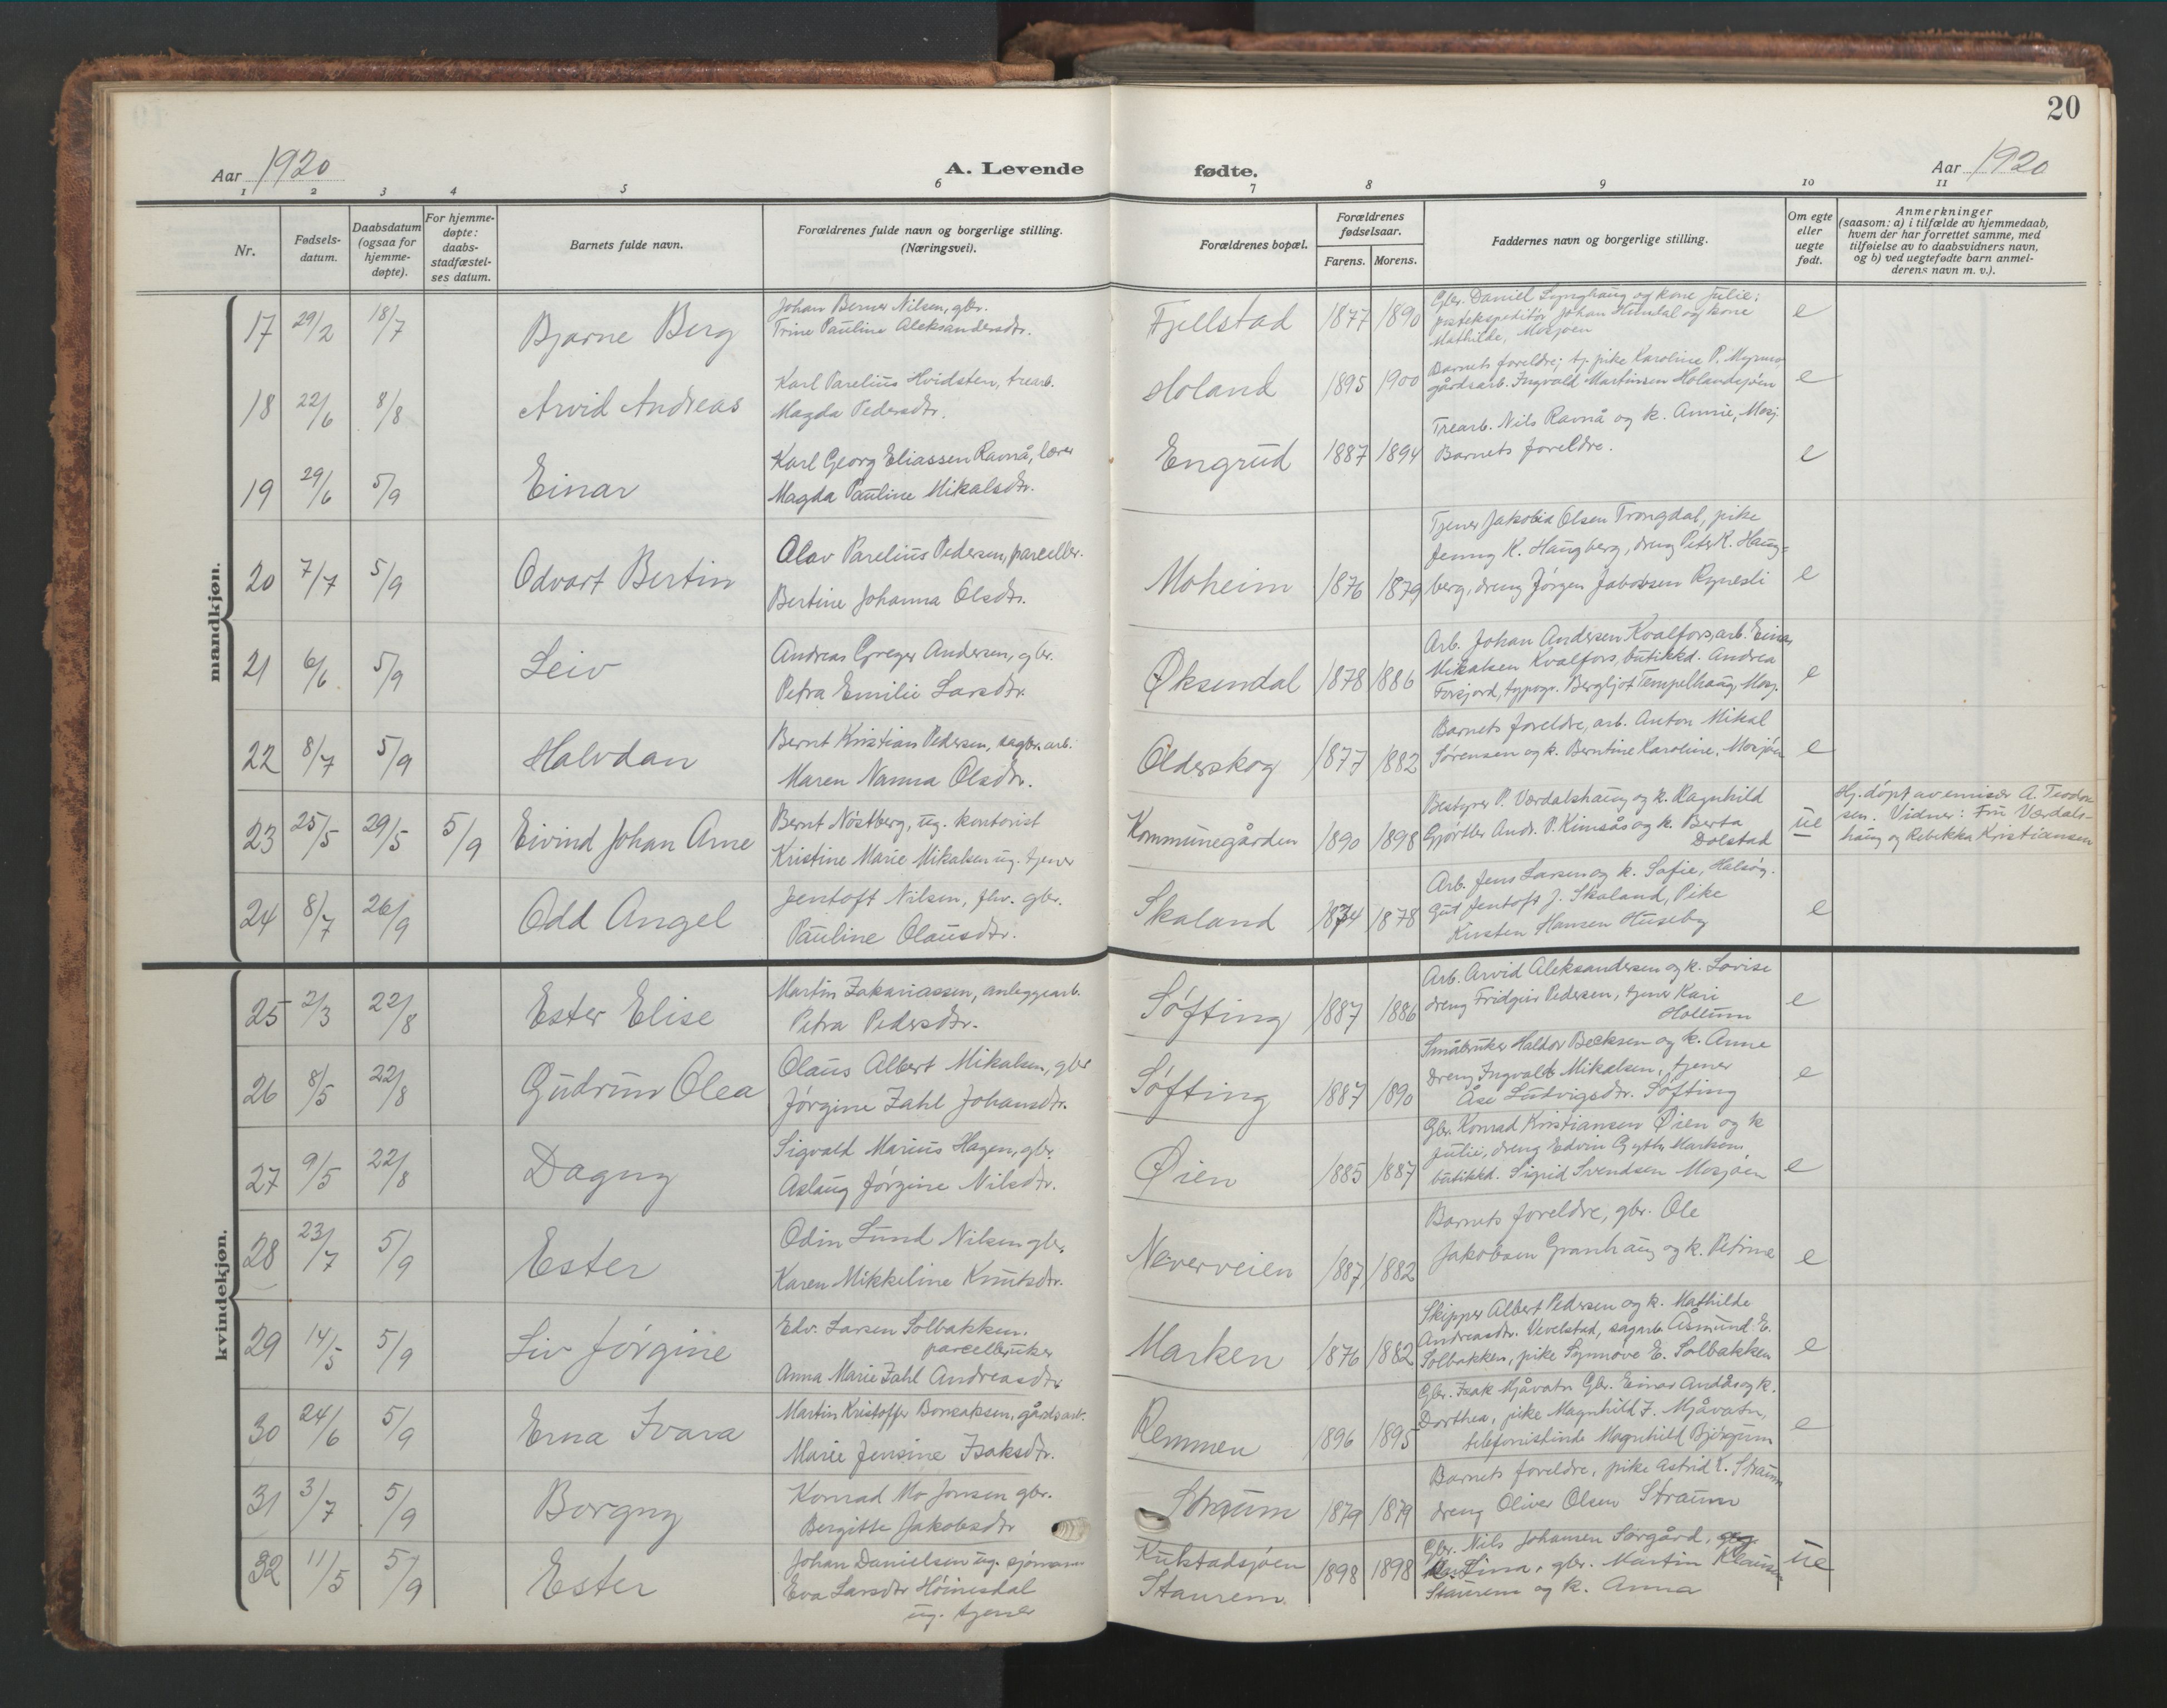 20
Aar 1920
A. Levende
fødte.
Aar 1920
1 2 3 4 5 6 7 8 9 10 11
Nr.
Fødsels-
datum.
Daabsdatum
(ogsaa for
hjemme-
døpte).
For hjemme-
døpte:
daabs-
stadfæstel-
ses datum.
Barnets fulde navn.
Forældrenes fulde navn og borgerlige stilling.
(Næringsvei).
Forældrenes bopæl.
Forældrenes
fødselsaar.
Farens. Morens.
Faddernes navn og borgerlige stilling.
Om egte
eller
uegte
født.
Anmerkninger
(saasom: a) i tilfælde av hjemmedaab,
hvem der har forrettet samme, med
tilføielse av to daabsvidners navn,
og b) ved uegtefødte barn anmel-
derens navn m. v.).
mandkjøn.
17 29/2 18/7 Bjarne Berg
Johan Berner Nilsen, gbr.
Trine Pauline Aleksandersdtr.
Fjellstad 1877 1890
Gbr. Daniel Lynghaug og kone Julie;
postekspeditør Johan Hundal og kone
Mathilde, Mosjøen
e
18 22/6 8/8 Arvid Andreas
Karl Parelius Hvidsten, trearb.
Magda Pedersdtr.
Holand 1895 1900
Barnets foreldre; tj. pike Karoline P. Myrmo,
gårdsarb. Ingvald Martinsen Holandsjøen
e
19 29/6 5/9 Einar
Karl Georg Eliassen Ravnå, lærer
Magda Pauline Mikalsdtr.
Engrud 1887 1894
Trearb. Nils Ravnå og k. Annie, Mosj.
Barnets foreldre.
e
20 7/7 5/9 Odvart Bertin
Olav Parelius Pedersen, parceller.
Bertine Johanna Olsdtr.
Moheim 1876 1879
Tjener Jakobia Olsen Trongdal, pike
Jenny K. Haugberg, dreng Peter K. Haug-
berg, dreng Jørgen Jakobsen Rynesli
e
21 6/6 5/9 Leiv
Andreas Greger Andersen, gbr.
Petra Emilie Larsdtr.
Øksendal 1878 1886
Arb. Johan Andersen Kvalfors, arb. Einar
Mikalsen Kvalfors, butikkd. Andrea
Forsjord, typogr. Bergljot Tempelhaug, Mosj.
e
22 8/7 5/9 Halvdan
Bernt Kristian Pedersen, sagbr. arb.
Maren Nanna Olsdtr.
Olderskog 1877 1882
Barnets foreldre, arb. Anton Mikal
Sørensen og k. Berntine Karoline, Mosjøen
e
23 25/5 29/5 5/9 Eivind Johan Arne
Bernt Nøstberg, ug. kontorist
Kristine Marie Mikalsen ug. tjener
Kommunegården 1890 1898
Bestyrer P. Værdalshaug og k. Ragnhild
Gjørtler Andr. P. Kimsås og k. Berta
Dolstad
ue
Hj. døpt av emisær A. Teodor
sen. Vidner: Fru Værdals-
haug og Rebekka Kristiansen
24 8/7 26/9 Odd Angel
Jentoft Nilsen, fhv. gbr.
Pauline Olausdtr.
Skaland 1874 1878
Arb. Jens Larsen og k. Sofie, Halsøy.
Gut Jentoft J. Skaland, Pike
Kirsten Hansen Huseby
e
kvindekjøn.
25 2/3 22/8 Ester Elise
Martin Zakariassen, anleggsarb.
Petra Pedersdtr.
Søfting 1887 1886
Arb. Arvid Aleksandersen og k. Lovise
dreng Fridgeir Pedersen, tjener Kari
Holtum
e
26 8/5 22/8 Gudrun Olea
Olaus Albert Mikalsen, gbr
Jørgine Zahl Johansdtr.
Søfting 1887 1890
Småbruker Haldor Becksen og k. Anne
dreng Ingvald Mikalsen, tjener
Åse Ludvigsdtr. Søfting
e
27 9/5 22/8 Dagny
Sigvald Marius Hagen, gbr.
Aslaug Jørgine Nilsdtr.
Øien 1885 1887
Gbr. Konrad Kristiansen Øien og k
Julie, dreng Edvin Marken,
butikkd. Sigrid Svendsen Mosjøen
e
28 23/7 5/9 Ester
Odin Lund Nilsen gbr.
Karen Mikkeline Knutsdtr.
Neverveien 1887 1882
Barnets foreldre, gbr. Ole
Jakobsen Granhaug og k. Petrine
e
29 14/5 5/9 Liv Jørgine
Edv. Larsen Solbakken,
parcelbruker
Anna Marie Zahl Andreasdtr
Marken 1876 1882
Skipper Albert Pedersen og k. Mathilde
Andreasdtr. Vevelstad, sagarb. Åsmund E.
Solbakken, pike Synnøve E. Solbakken
e
30 24/6 5/9 Erna Ivara
Martin Kristoffer Bonsaksen, gårdsarb.
Marie Jensine Isaksdtr.
Remmen 1896 1895
Gbr. Isak Mjåvatn Gbr. Einar Andås og k.
Dorthea, pike Magnhild I. Mjåvatn,
telefonistinde Magnhild Bjørgum
e
31 3/7 5/9 Borgny
Konrad Mo Jonsen gbr.
Bergitte Jakobsdtr
Straum 1879 1879
Barnets foreldre, pike Astrid K. Straum
dreng Oliver Olsen Straum
32 11/5 5/9 Ester
Johan Danielsen ug. sjømann
Eva Larsdtr Høinesdal
ug. tjener
Kulstadsjøen
Staurem 1898 1898
Gbr. Nils Johansen Sørgård, og
k. Lina, gbr. Martin Klausen
Staurem og k. Anna
ue